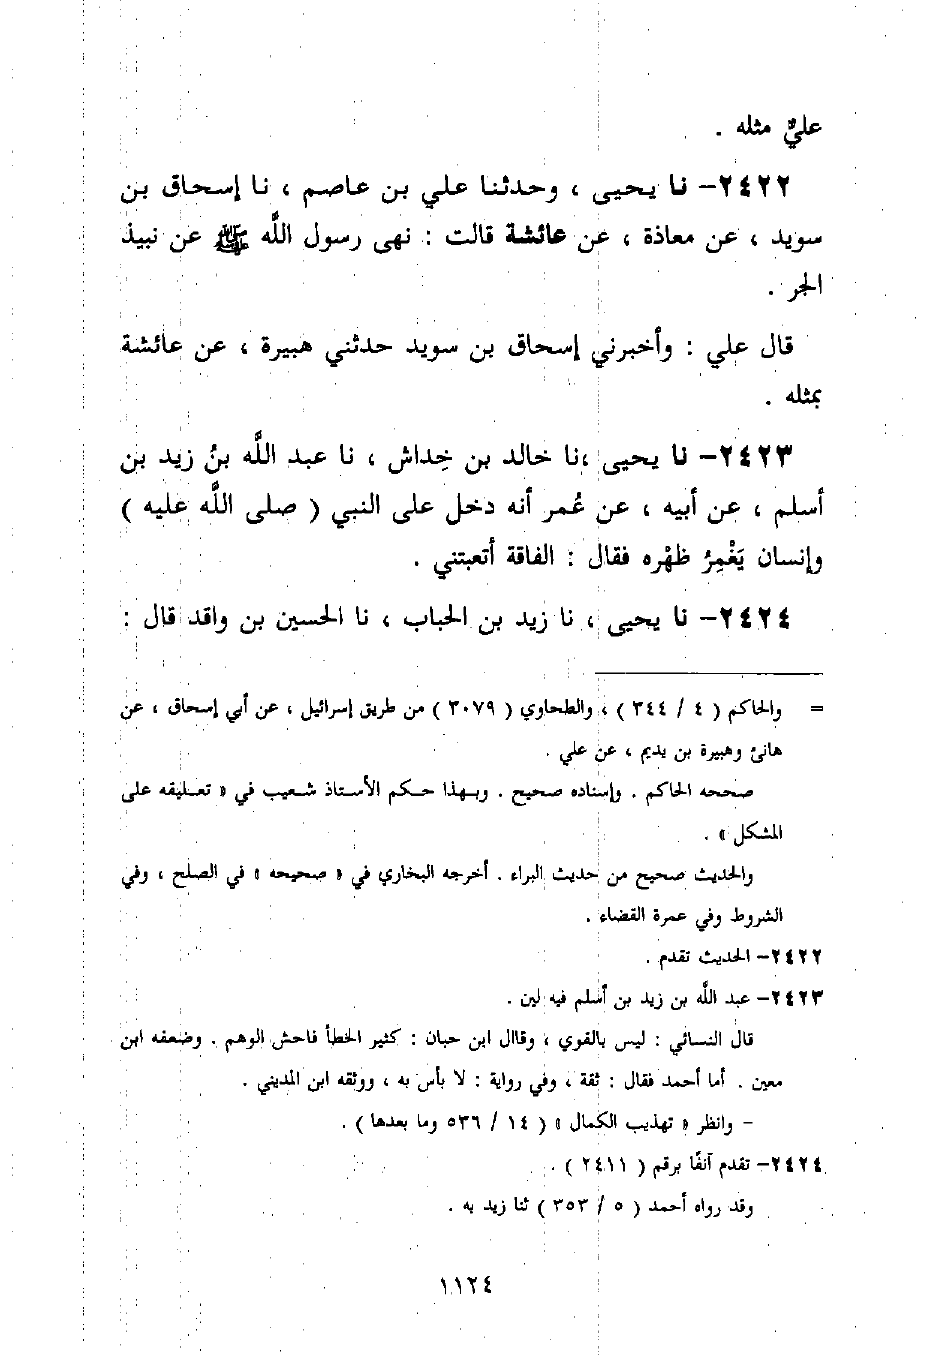 عليٌّ مثله .
٢٤٢٢- نا يحيى ، وحدثنا علي بن عاصم ، نا إسحاق بن
سويد ، عن معاذة ، عن عائشة قالت : نهى رسول اللَّه ﷺ عن نبيذ
الجر .
قال علي : وأخبرني إسحاق بن سويد حدثني هبيرة ، عن عائشة
بمثله .
٢٤٢٣- نا يحيى ،نا خالد بن خِداش ، نا عبد اللَّه بنُ زيد بن
أسلم ، عن أبيه ، عن عُمر أنه دخل على النبي ( صلى اللَّه عليه )
وإنسان يَغْمِزُ ظهْره فقال : الفاقة أتعبتني .
٢٤٢٤- نا يحيى ، نا زيد بن الحباب ، نا الحسين بن واقد قال :
= والحاكم ( ٤ / ٣٤٤ ) ، والطحاوي ( ٣٠٧٩ ) من طريق إسرائيل ، عن أبي إسحاق ، عن
هانئ وهبيرة بن يديم ، عن علي .
صححه الحاكم . وإسناده صحيح . وبهذا حكم الأستاذ شعيب في « تعليقه على
المشكل » .
والحديث صحيح من حديث البراء . أخرجه البخاري في « صحيحه » في الصلح ، وفي
الشروط وفي عمرة القضاء .
٢٤٢٢- الحديث تقدم .
٢٤٢٣- عبد اللَّه بن زيد بن أسلم فيه لين .
قال النسائي : ليس بالقوي ، وقاال ابن حبان : كثير الخطأ فاحش الوهم . وضعفه ابن
معين . أما أحمد فقال : ثقة ، وفي رواية : لا بأس به ، ووثقه ابن المديني .
- وانظر « تهذيب الكمال » ( ١٤ / ٥٣٦ وما بعدها ) .
٢٤٢٤- تقدم آنفًا برقم ( ٢٤١١ ) .
وقد رواه أحمد ( ٥ / ٣٥٣ ) ثنا زيد به .
١١٢٤